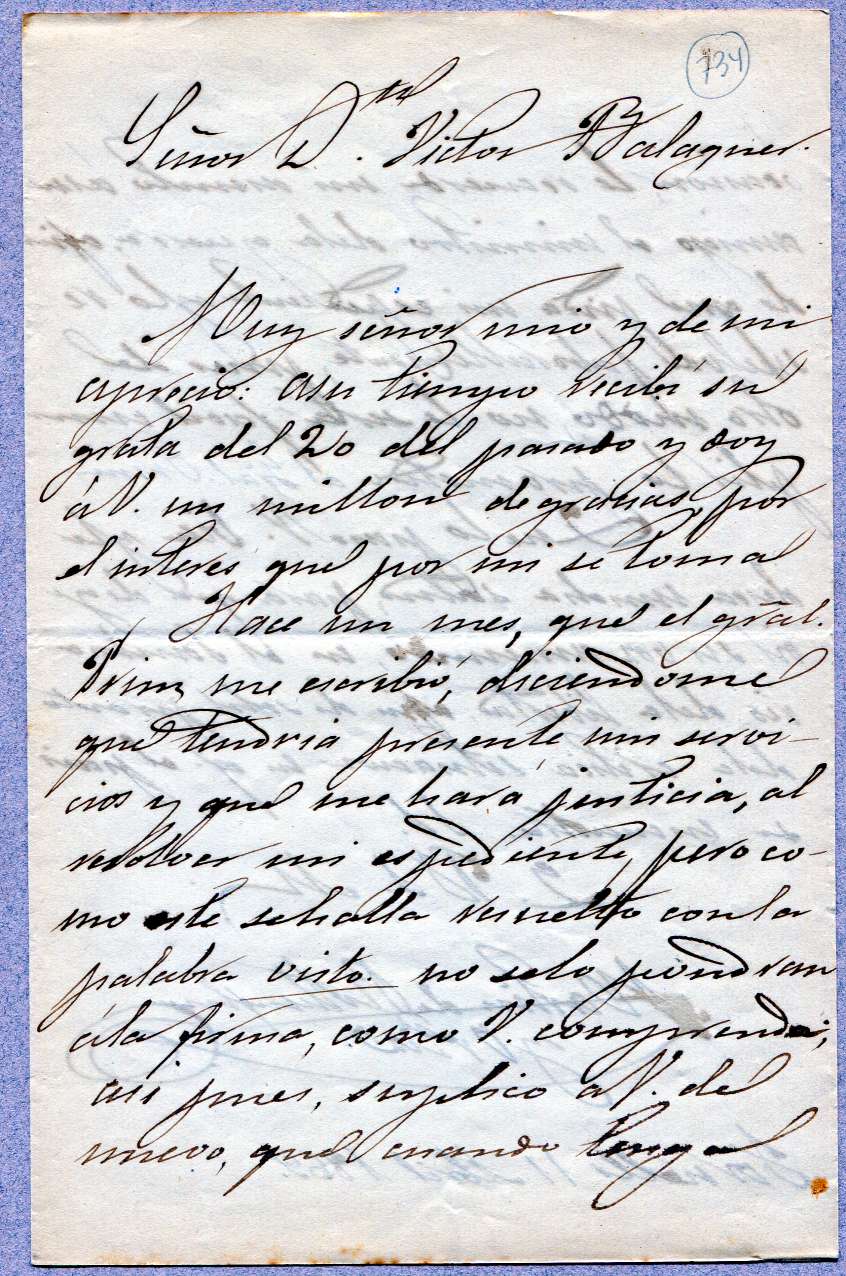 734
Señor D. Victor Balaguer.
Muy señor mio y de mi
aprecio: asu tiempo recibí su
grata del 20 del pasado y doy
á V. un millon de gracias, por
el interes que por mi se toma
Hace un mes, que el gral.
Prim me escribió, diciendome
que tendria presente mis servi-
cios y que me hará justicia, al
resolver mi espediente, pero co-
mo este sehalla resuelto con la
palabra visto. no selo pondran
ála firma, como V. comprende;
asi pues, suplico a V. de
nuevo, que cuando tenga